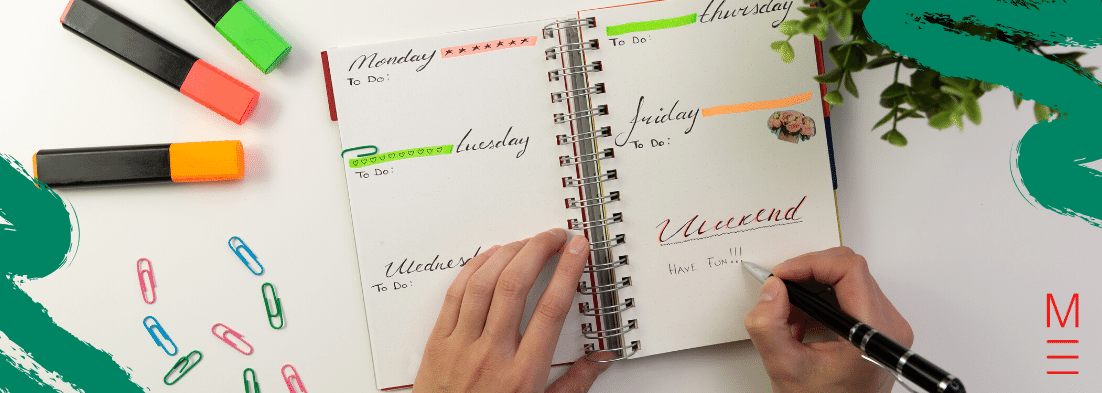 Monday
To Do:
tuesday
To Do:
Wednesd
To Do:
thursday
To Do:
friday
To Do:
Weekend
HAVE FUN!!!
M